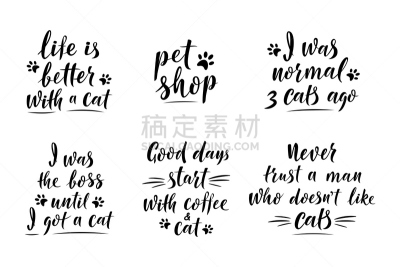 life is
better
with a cat
pet
shop
I was
normal
3 cats ago
I was
the boss
until
I got a cat
Good days
start
with coffee
&
cat
Never
trust a man
who doesn't like
cats
搞定素材
SUCAI.GAODING.COM